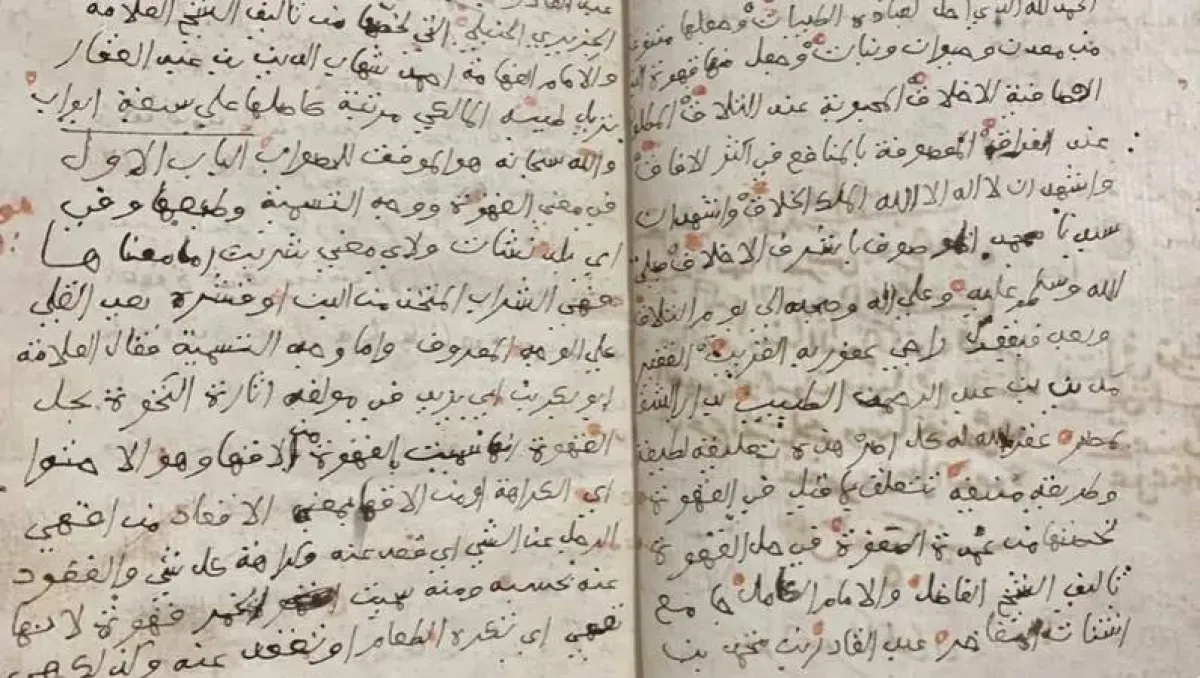 الحمد لله الذي احل لعباده الطيبات وجعلها متنوعة
من معدن وحيوان ونبات وجعل منها قهوة
الصافية للاخلاق المحبوبة عند التلاق
عند الفراق الموصوفة بالمنافع في اكثر الافاق
واشهد ان لا اله الا الله الملك الخلاق واشهد ان
سيدنا محمد الموصوف باشرف الاخلاق صلى
الله وسلم عليه وعلي اله وصحبه الى يوم التلاق
وبعد فيقول راجي عفو ربه القريب الفقير
مدين بن عبد الرحمن الطبيب بدار الشفا
بمصر غفر الله له كل اصر هذه تعليقة لطيفة
وطريقة منيفة تتعلق بما قيل في القهوة
لخصتها من عمدة الصفوة في حل القهوة
تاليف الشيخ الفاضل والامام الكامل جامع
اشتات المفاخر عبد القادر بن محمد بن
عبد القادر
الجزيري الحنبلي التي لخصها من تاليف الشيخ العلامة
والامام الفهامة احمد شهاب الدين بن عبد الغفار
نزيل طيبة المالكي مرتبة حاصلها علي سبعة ابواب
والله سبحانه هو الموفق للصواب الباب الاول
في معني القهوة ووجه التسمية وطبعها وفي
اي بلد نشات ولاي معني شربت اما معناها
فهي الشراب المتخذ من البن او قشره بعد القلي
علي الوجه المعروف واما وجه التسمية فقال العلامة
ابو بكر بن ابي يزيد في مولفه اثارة النخوة بحل
القهوة انها سميت بالقهوة من الاقها وهو الاجتوا
اي الكراهة او من الاقها بمعني الاقعاد من اقهي
الرجل عن الشي اي قعد عنه وكراهة كل شي والقعود
عنه بحسبه ومنه سميت الخمر قهوة لانها
تقهي اي تكره الطعام او تقعد عنه وكذلك هي